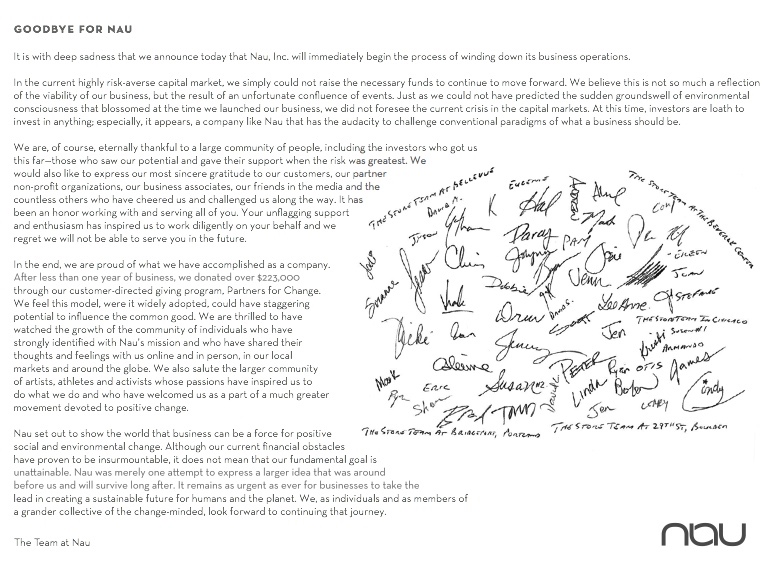 GOODBYE FOR NAU
It is with deep sadness that we announce today that Nau, Inc. will immediately begin the process of winding down its business operations.
In the current highly risk-averse capital market, we simply could not raise the necessary funds to continue to move forward. We believe this is not so much a reflection
of the viability of our business, but the result of an unfortunate confluence of events. Just as we could not have predicted the sudden groundswell of environmental
consciousness that blossomed at the time we launched our business, we did not foresee the current crisis in the capital markets. At this time, investors are loath to
invest in anything; especially, it appears, a company like Nau that has the audacity to challenge conventional paradigms of what a business should be.
We are, of course, eternally thankful to a large community of people, including the investors who got us
this far—those who saw our potential and gave their support when the risk was greatest. We
would also like to express our most sincere gratitude to our customers, our partner
non-profit organizations, our business associates, our friends in the media and the
countless others who have cheered us and challenged us along the way. It has
been an honor working with and serving all of you. Your unflagging support
and enthusiasm has inspired us to work diligently on your behalf and we
regret we will not be able to serve you in the future.
In the end, we are proud of what we have accomplished as a company.
After less than one year of business, we donated over $223,000
through our customer-directed giving program, Partners for Change.
We feel this model, were it widely adopted, could have staggering
potential to influence the common good. We are thrilled to have
watched the growth of the community of individuals who have
strongly identified with Nau's mission and who have shared their
thoughts and feelings with us online and in person, in our local
markets and around the globe. We also salute the larger community
of artists, athletes and activists whose passions have inspired us to
do what we do and who have welcomed us as a part of a much greater
movement devoted to positive change.
Nau set out to show the world that business can be a force for positive
social and environmental change. Although our current financial obstacles
have proven to be insurmountable, it does not mean that our fundamental goal is
unattainable. Nau was merely one attempt to express a larger idea that was around
before us and will survive long after. It remains as urgent as ever for businesses to take the
lead in creating a sustainable future for humans and the planet. We, as individuals and as members of
a grander collective of the change-minded, look forward to continuing that journey.
The Team at Nau
THE STORE TEAM AT BELLEVUE
EUGENIE
Hal
K
Chris
Debbie
PAM
Jenn
EILEEN
JUAN
LeeAnne
STEFANIE
THE STORE TEAM IN CHICAGO
Drew
Jen
Kristi
ARMANDO
Vicki
Jenny
PETER
Ryan
OTIS
James
Mark
ERIC
Susanne
Linda
Cindy
Brad
TODD
Jen
LEARY
THE STORE TEAM AT BRIDGEPORT, PORTLAND
THE STORE TEAM AT 29TH ST, BOULDER
nau